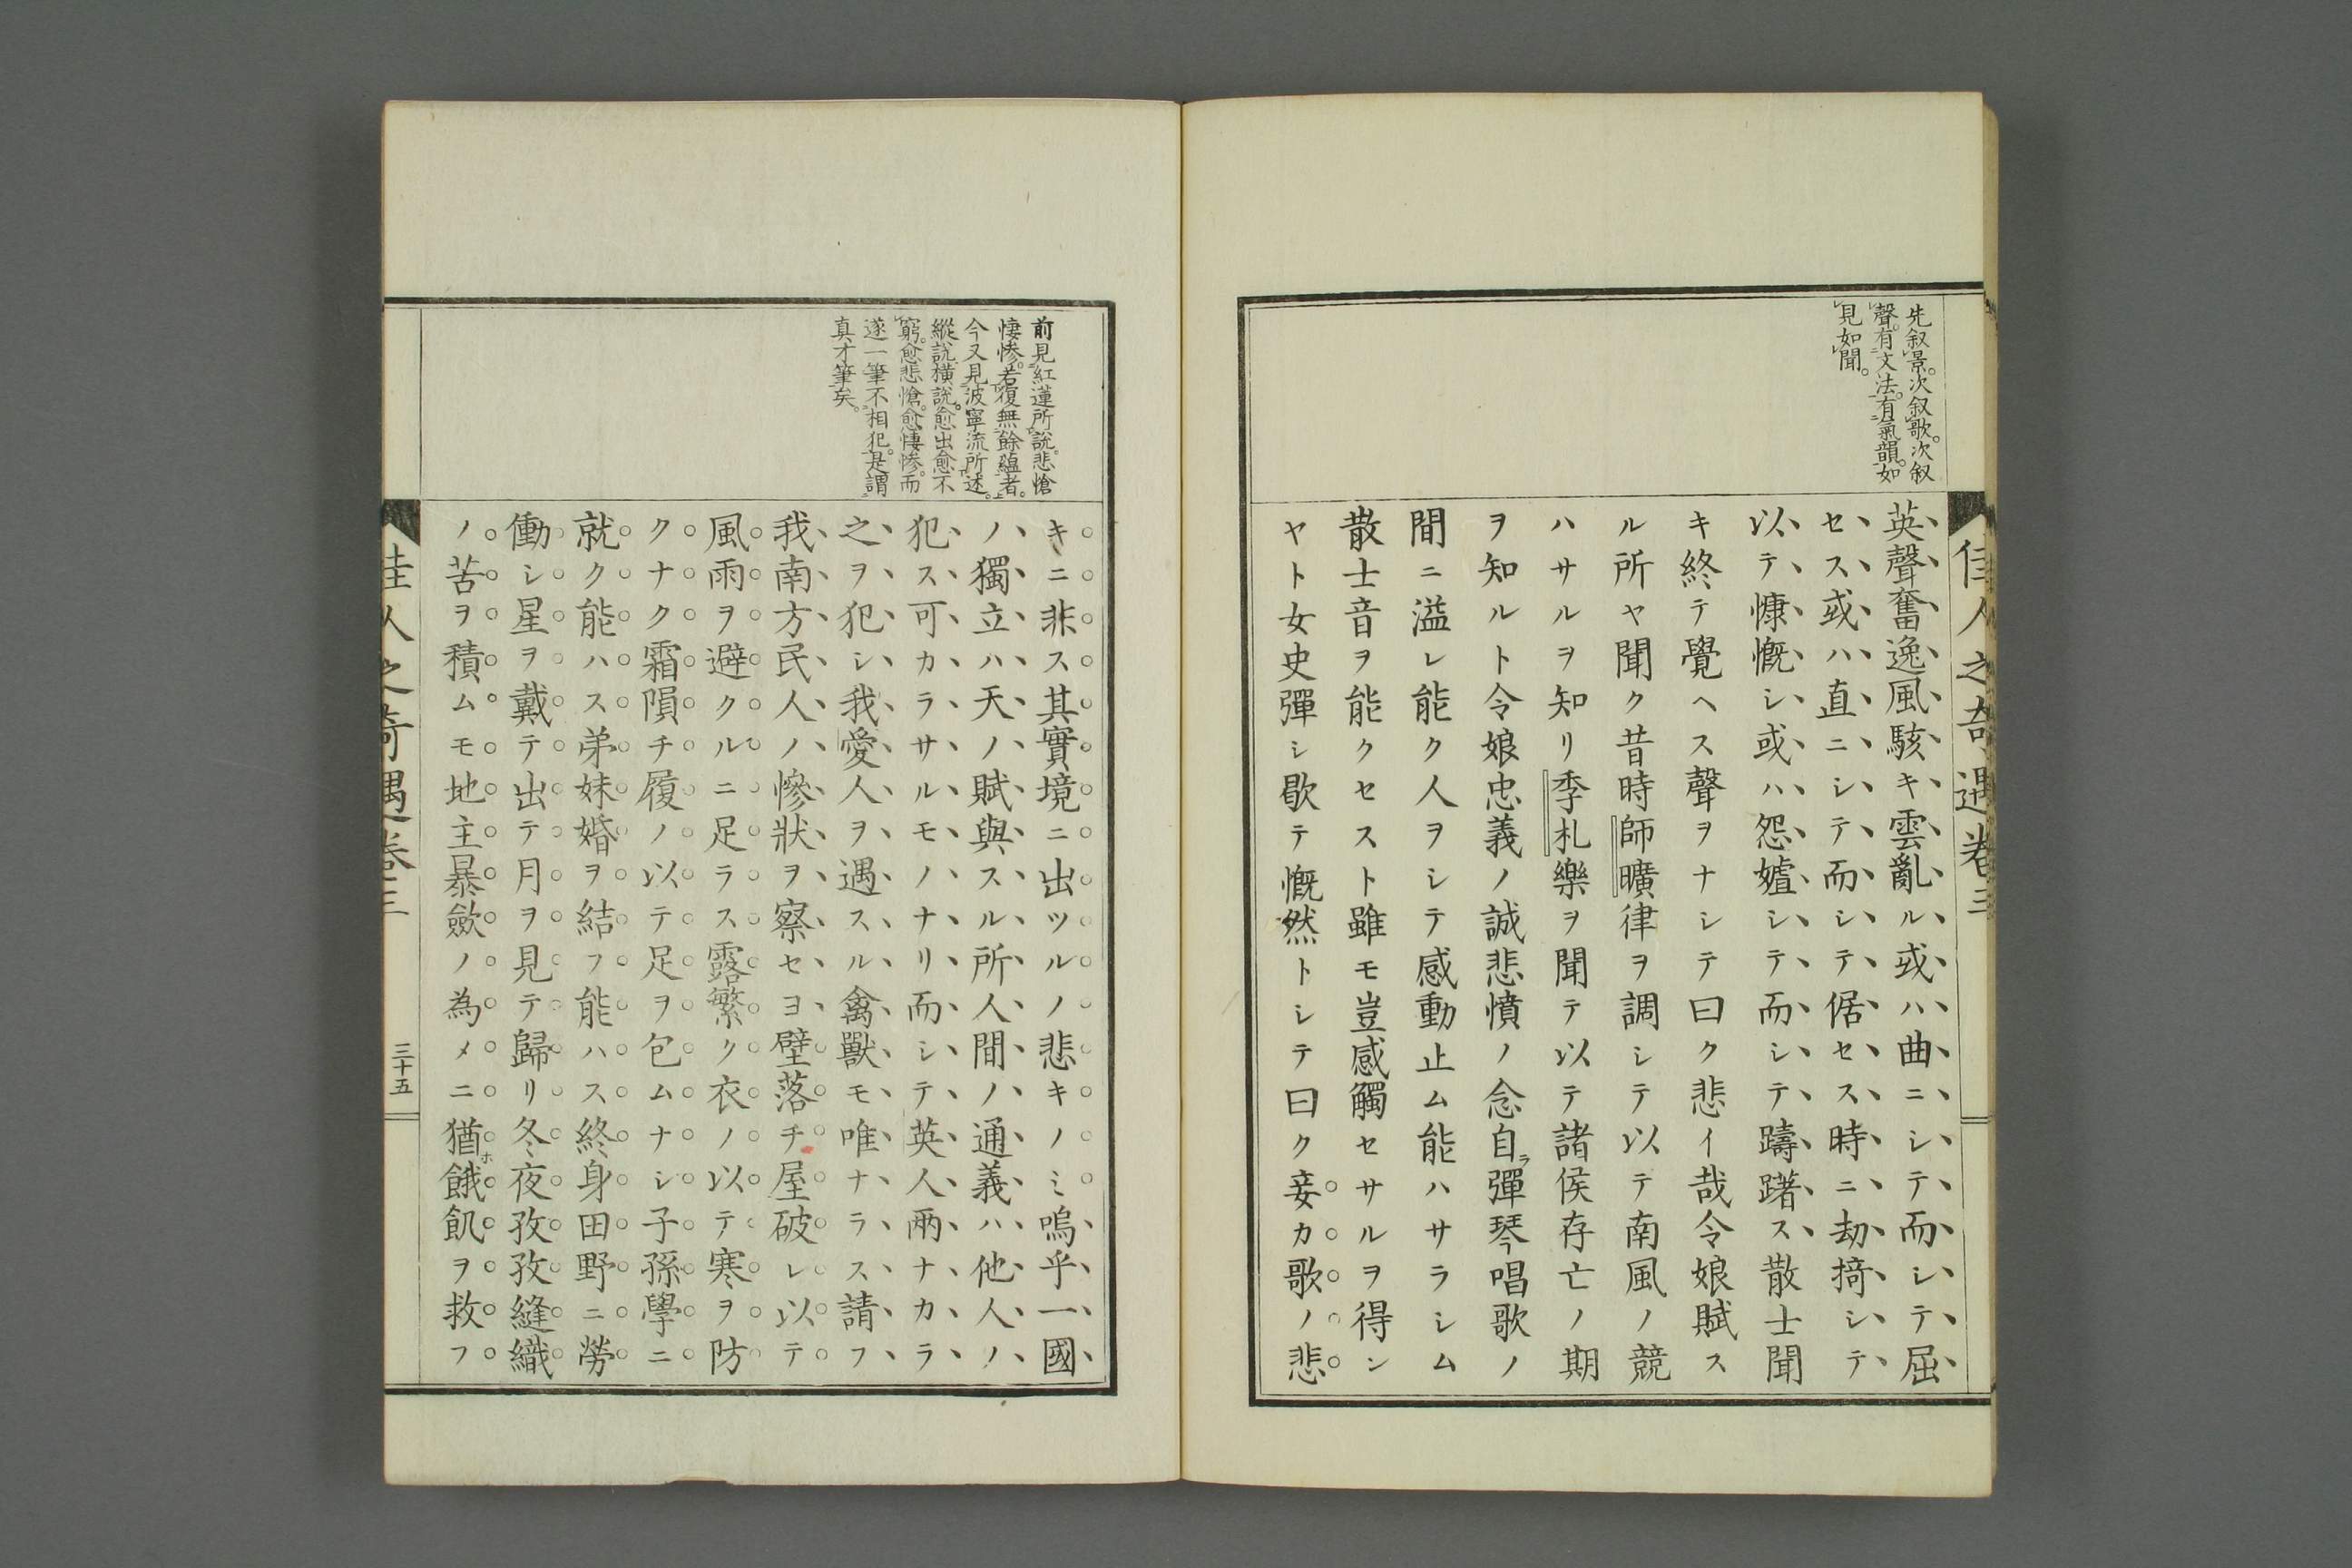 佳人之奇遇卷三
先叙景。次叙歌。次叙
聲。有文法。有氣韻。如
見如聞。
英聲奮逸風駭キ雲亂ル或ハ曲ニシテ而シテ屈
セス或ハ直ニシテ而シテ倨セス時ニ劫掎シテ
以テ慷慨シ或ハ怨嫭シテ而シテ躊躇ス散士聞
キ終テ覺ヘス聲ヲナシテ曰ク悲イ哉令娘賦ス
ル所ヤ聞ク昔時師曠律ヲ調シテ以テ南風ノ競
ハサルヲ知リ季札樂ヲ聞テ以テ諸侯存亡ノ期
ヲ知ルト令娘忠義ノ誠悲憤ノ念自ラ彈琴唱歌ノ
間ニ溢レ能ク人ヲシテ感動止ム能ハサラシム
散士音ヲ能クセスト雖モ豈感觸セサルヲ得ン
ヤト女史彈シ歇テ慨然トシテ曰ク妾カ歌ノ悲
前見紅蓮所說。悲愴
悽慘。若復無餘蘊者。
今又見波寧流所述。
縱說橫說。愈出愈不
窮。愈悲愴。愈悽慘。而
遂一筆不相犯。是謂
真才筆矣。
キニ非ス其實境ニ出ツルノ悲キノミ嗚乎一國
ノ獨立ハ天ノ賦與スル所人間ノ通義ハ他人ノ
犯ス可カラサルモノナリ而シテ英人兩ナカラ
之ヲ犯シ我愛人ヲ遇スル禽獸モ唯ナラス請フ
我南方民人ノ慘狀ヲ察セヨ壁落チ屋破レ以テ
風雨ヲ避クルニ足ラス露繁ク衣ノ以テ寒ヲ防
クナク霜隕チ履ノ以テ足ヲ包ムナシ子孫學ニ
就ク能ハス弟妹婚ヲ結フ能ハス終身田野ニ勞
働シ星ヲ戴テ出テ月ヲ見テ歸リ冬夜孜孜縫織
ノ苦ヲ積ムモ地主暴歛ノ為メニ猶ホ餓飢ヲ救フ
佳人之奇遇卷三
三十五